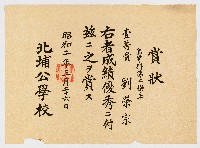 賞狀
劉榮宗
右者成績優秀ニ付
茲ニ之ヲ賞ス
昭和二年三月二十六日
北埔公學校